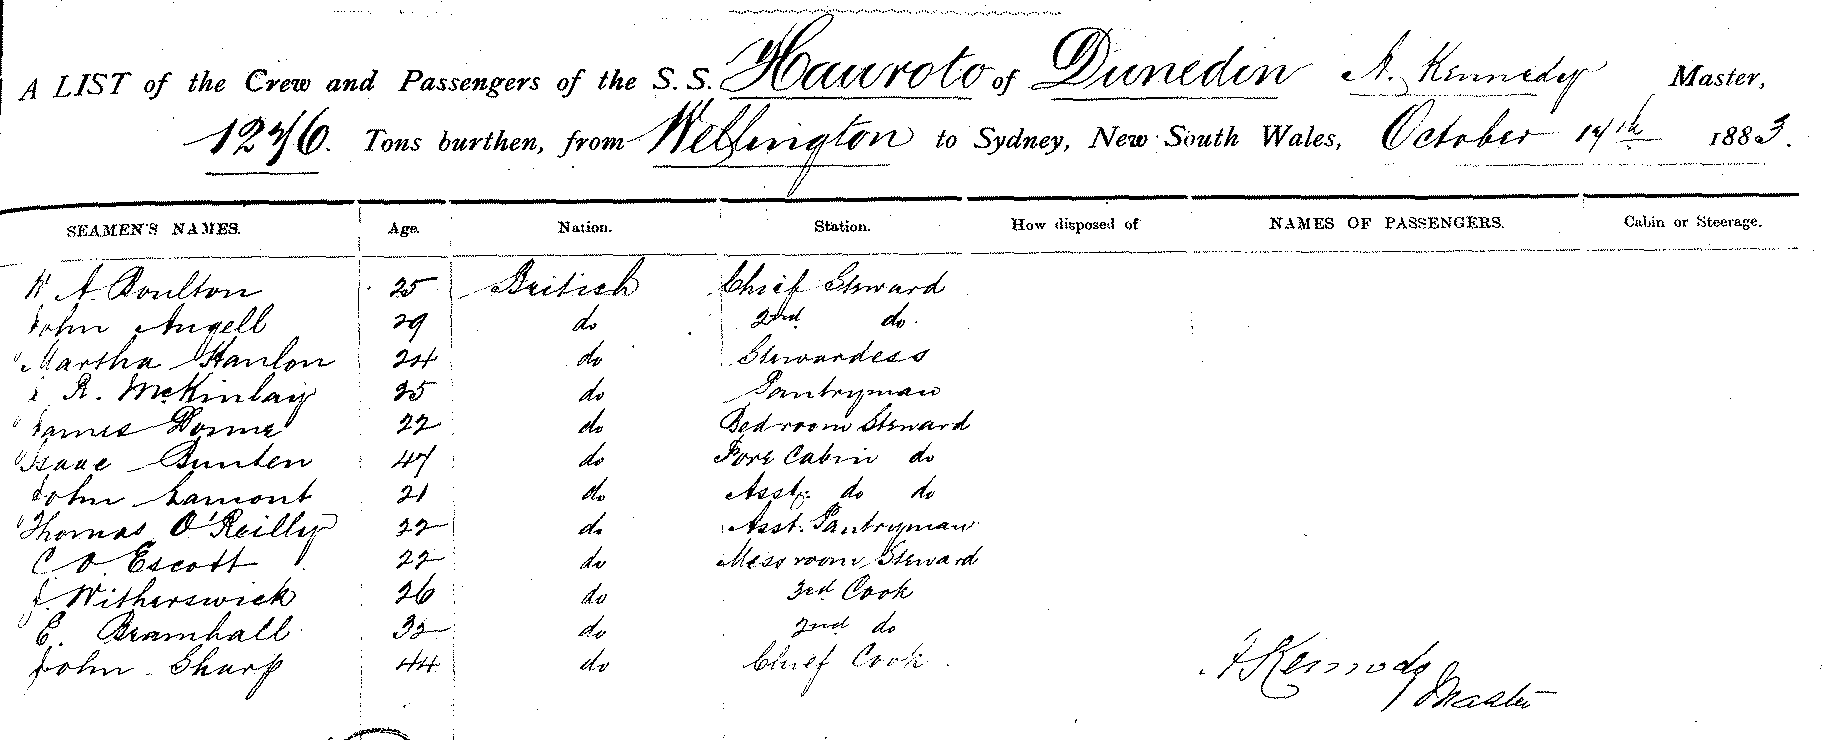 A LIST of the Crew and Passengers of the S.S. Hauroto of Dunedin A. Kennedy Master,
1276. Tons burthen, from Wellington to Sydney, New South Wales, October 14th 1883.
SEAMEN'S NAMES. Age. Nation. Station. How disposed of NAMES OF PASSENGERS. Cabin or Steerage.
W. A. Boulton 25 British Chief Steward
John Angell 29 do 2nd do.
Martha Hanlon 24 do Stewardess
R. McKinlay 25 do Pantryman
James 22 do Bedroom Steward
Isaac Bunten 47 do Fore Cabin do
John Lamont 21 do Asst. do do
Thomas O'Reilly 22 do Asst. Pantryman
C. O. Escott 22 do Messroom Steward
J. Witherswick 26 do 3rd Cook
E. Bramhall 32 do 2nd do
John Sharp 44 do Chief Cook
A Kennedy
Master